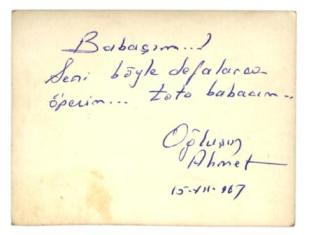 Babacığım...!
Seni böyle defalarca
öperim... toto babacım...
Oğlunuz
Ahmet
15-VII-967